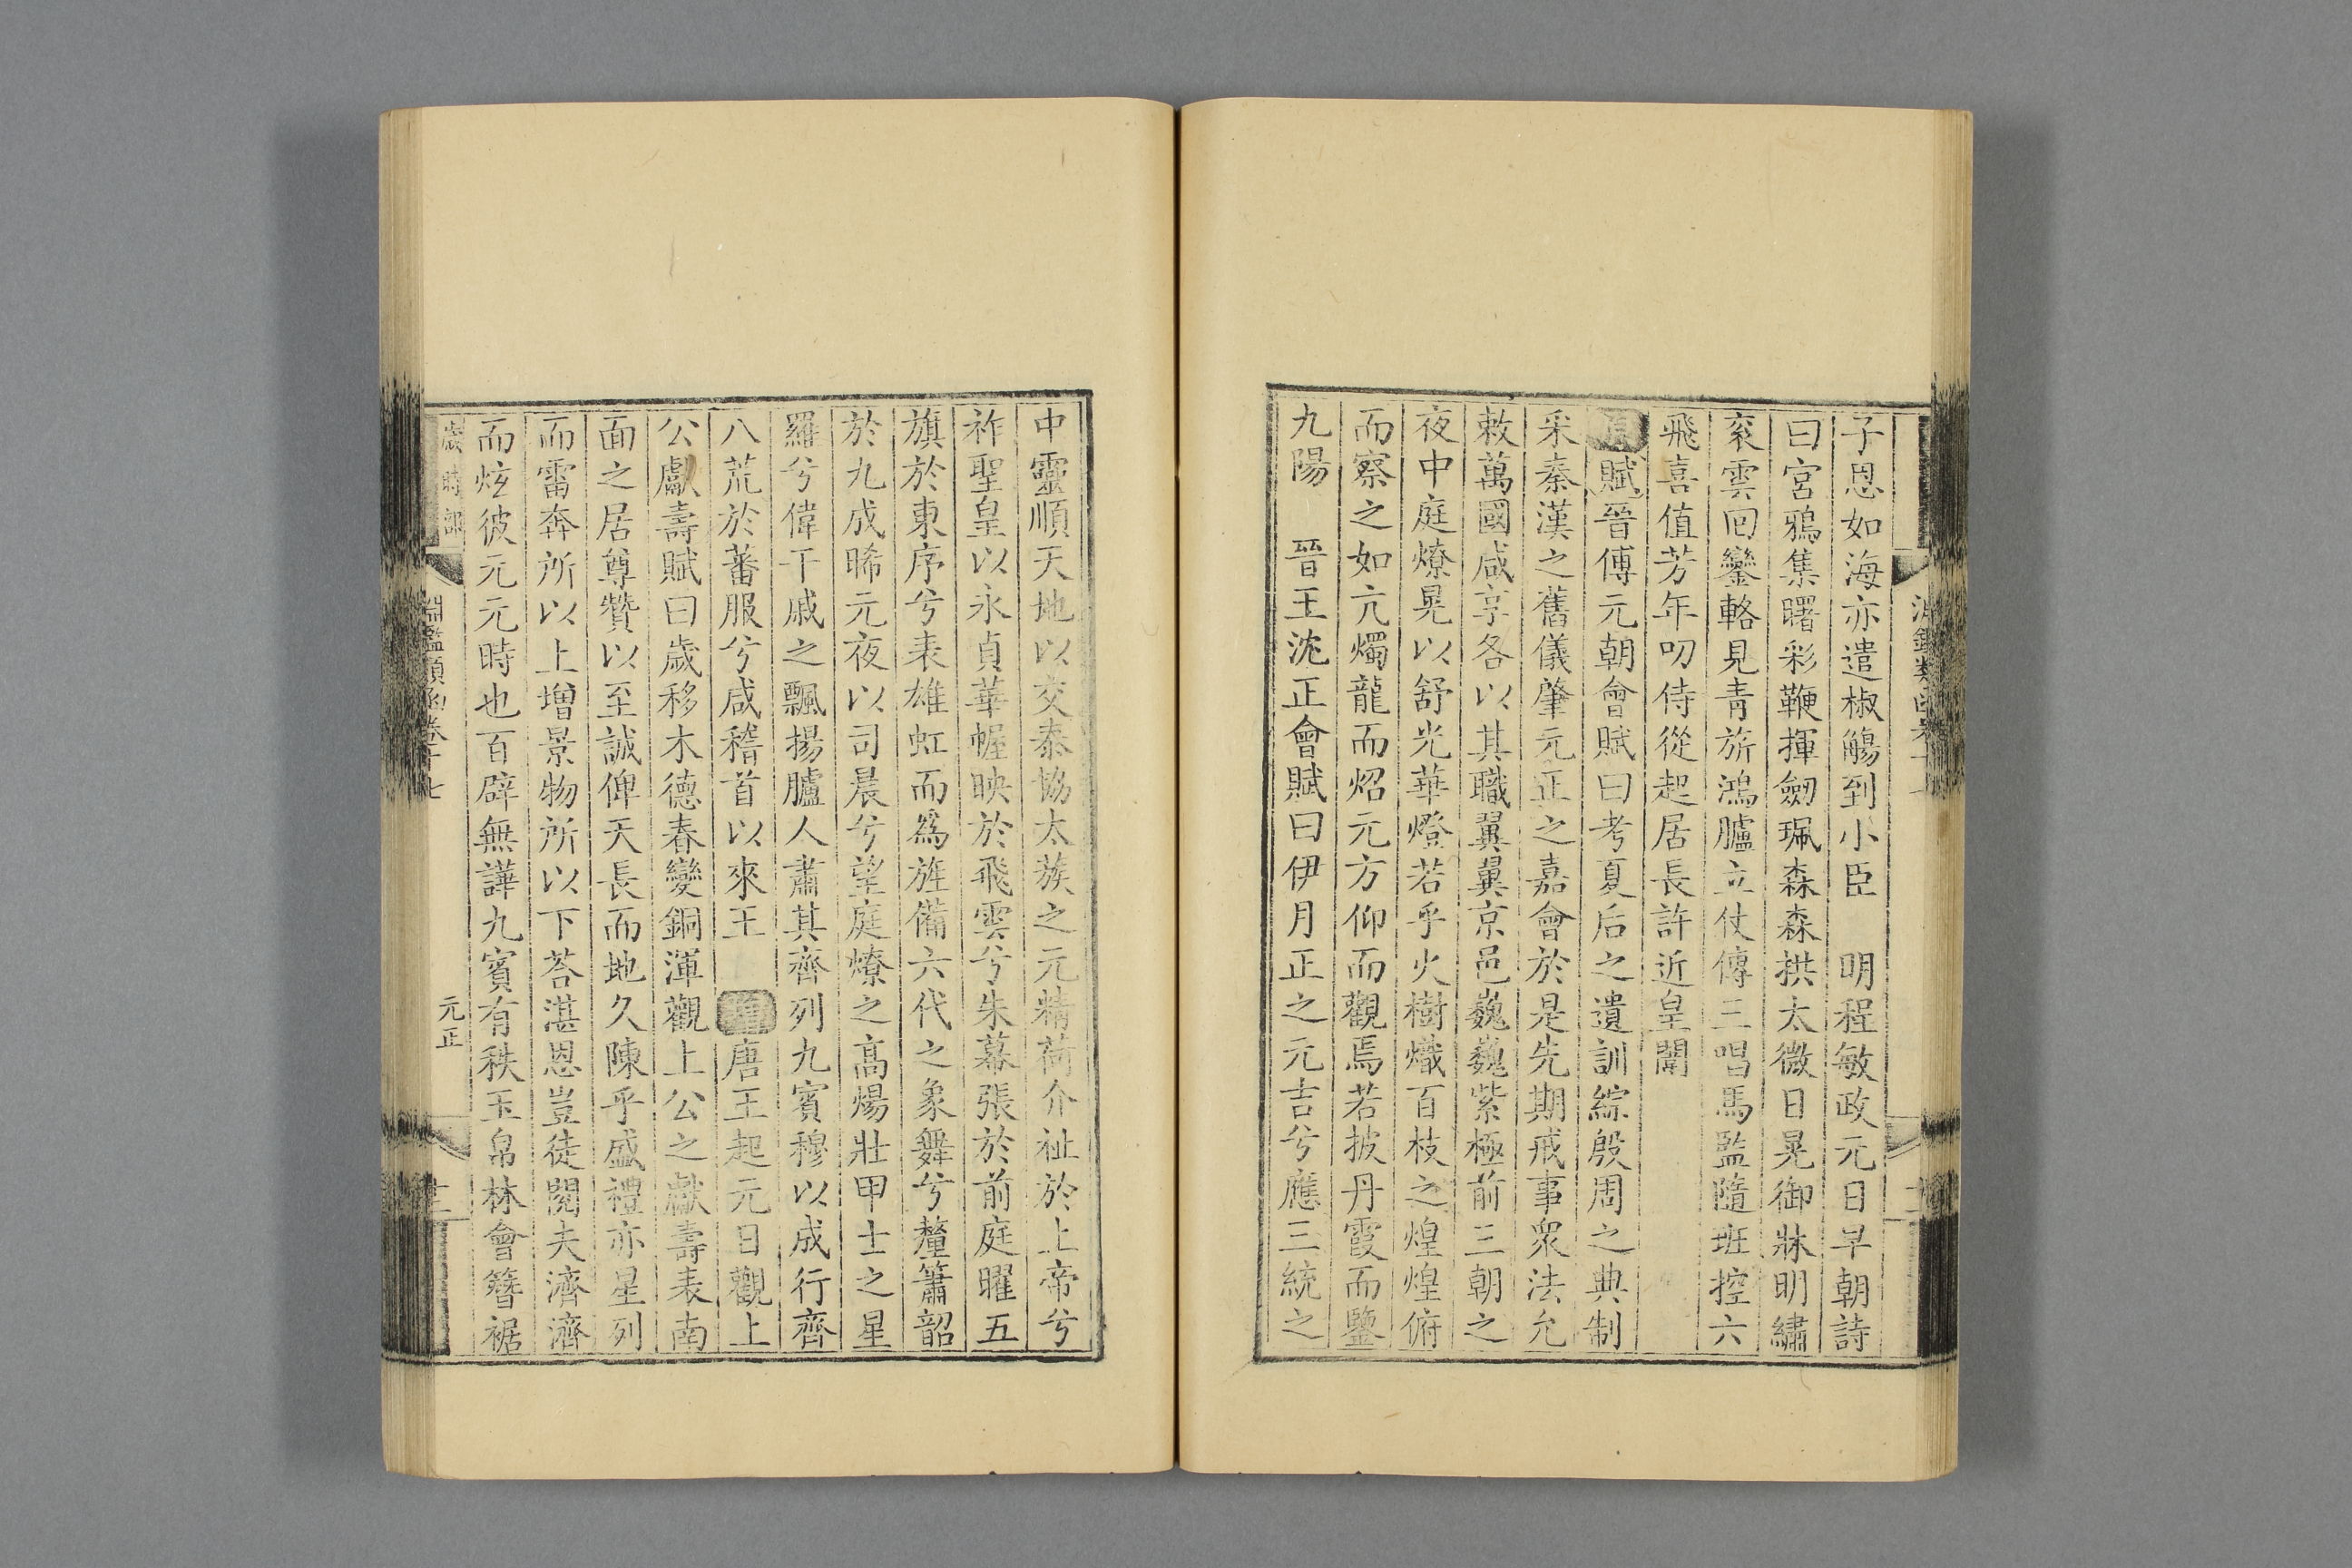 子恩如海亦遣椒觴到小臣　明程敏政元日早朝詩
曰宮鴉集曙彩鞭揮劒珮森森拱太微日晃御牀明繡
衮雲回鑾輅見青旂鴻臚立仗傳三唱馬監隨班控六
飛喜值芳年叨侍從起居長許近皇闈
賦晉傅元朝會賦曰考夏后之遺訓綜殷周之典制
采秦漢之舊儀肇元正之嘉會於是先期戒事衆法允
敕萬國咸享各以其職翼翼京邑巍巍紫極前三朝之
夜中庭燎晃以舒光華燈若乎火樹熾百枝之煌煌俯
而察之如亢燭龍而炤元方仰而觀焉若披丹霞而鑒
九陽　晉王沈正會賦曰伊月正之元吉兮應三統之
中靈順天地以交泰協太蔟之元精荷介祉於上帝兮
祚聖皇以永貞華幄映於飛雲兮朱幕張於前庭曜五
旗於東序兮表雄虹而爲旌備六代之象舞兮釐簫韶
於九成晞元夜以司晨兮望庭燎之高煬壯甲士之星
羅兮偉干戚之飄揚臚人肅其齊列九賓穆以成行齊
八荒於蕃服兮咸稽首以來王　增唐王起元日觀上
公獻壽賦曰歲移木德春變銅渾觀上公之獻壽表南
面之居尊贊以至誠俾天長而地久陳乎盛禮亦星列
而雷奔所以上增景物所以下荅湛恩豈徒閱夫濟濟
而炫彼元元時也百辟無譁九賓有秩玉帛林會簪裾
歲時部
淵鑑類函卷十七
元正